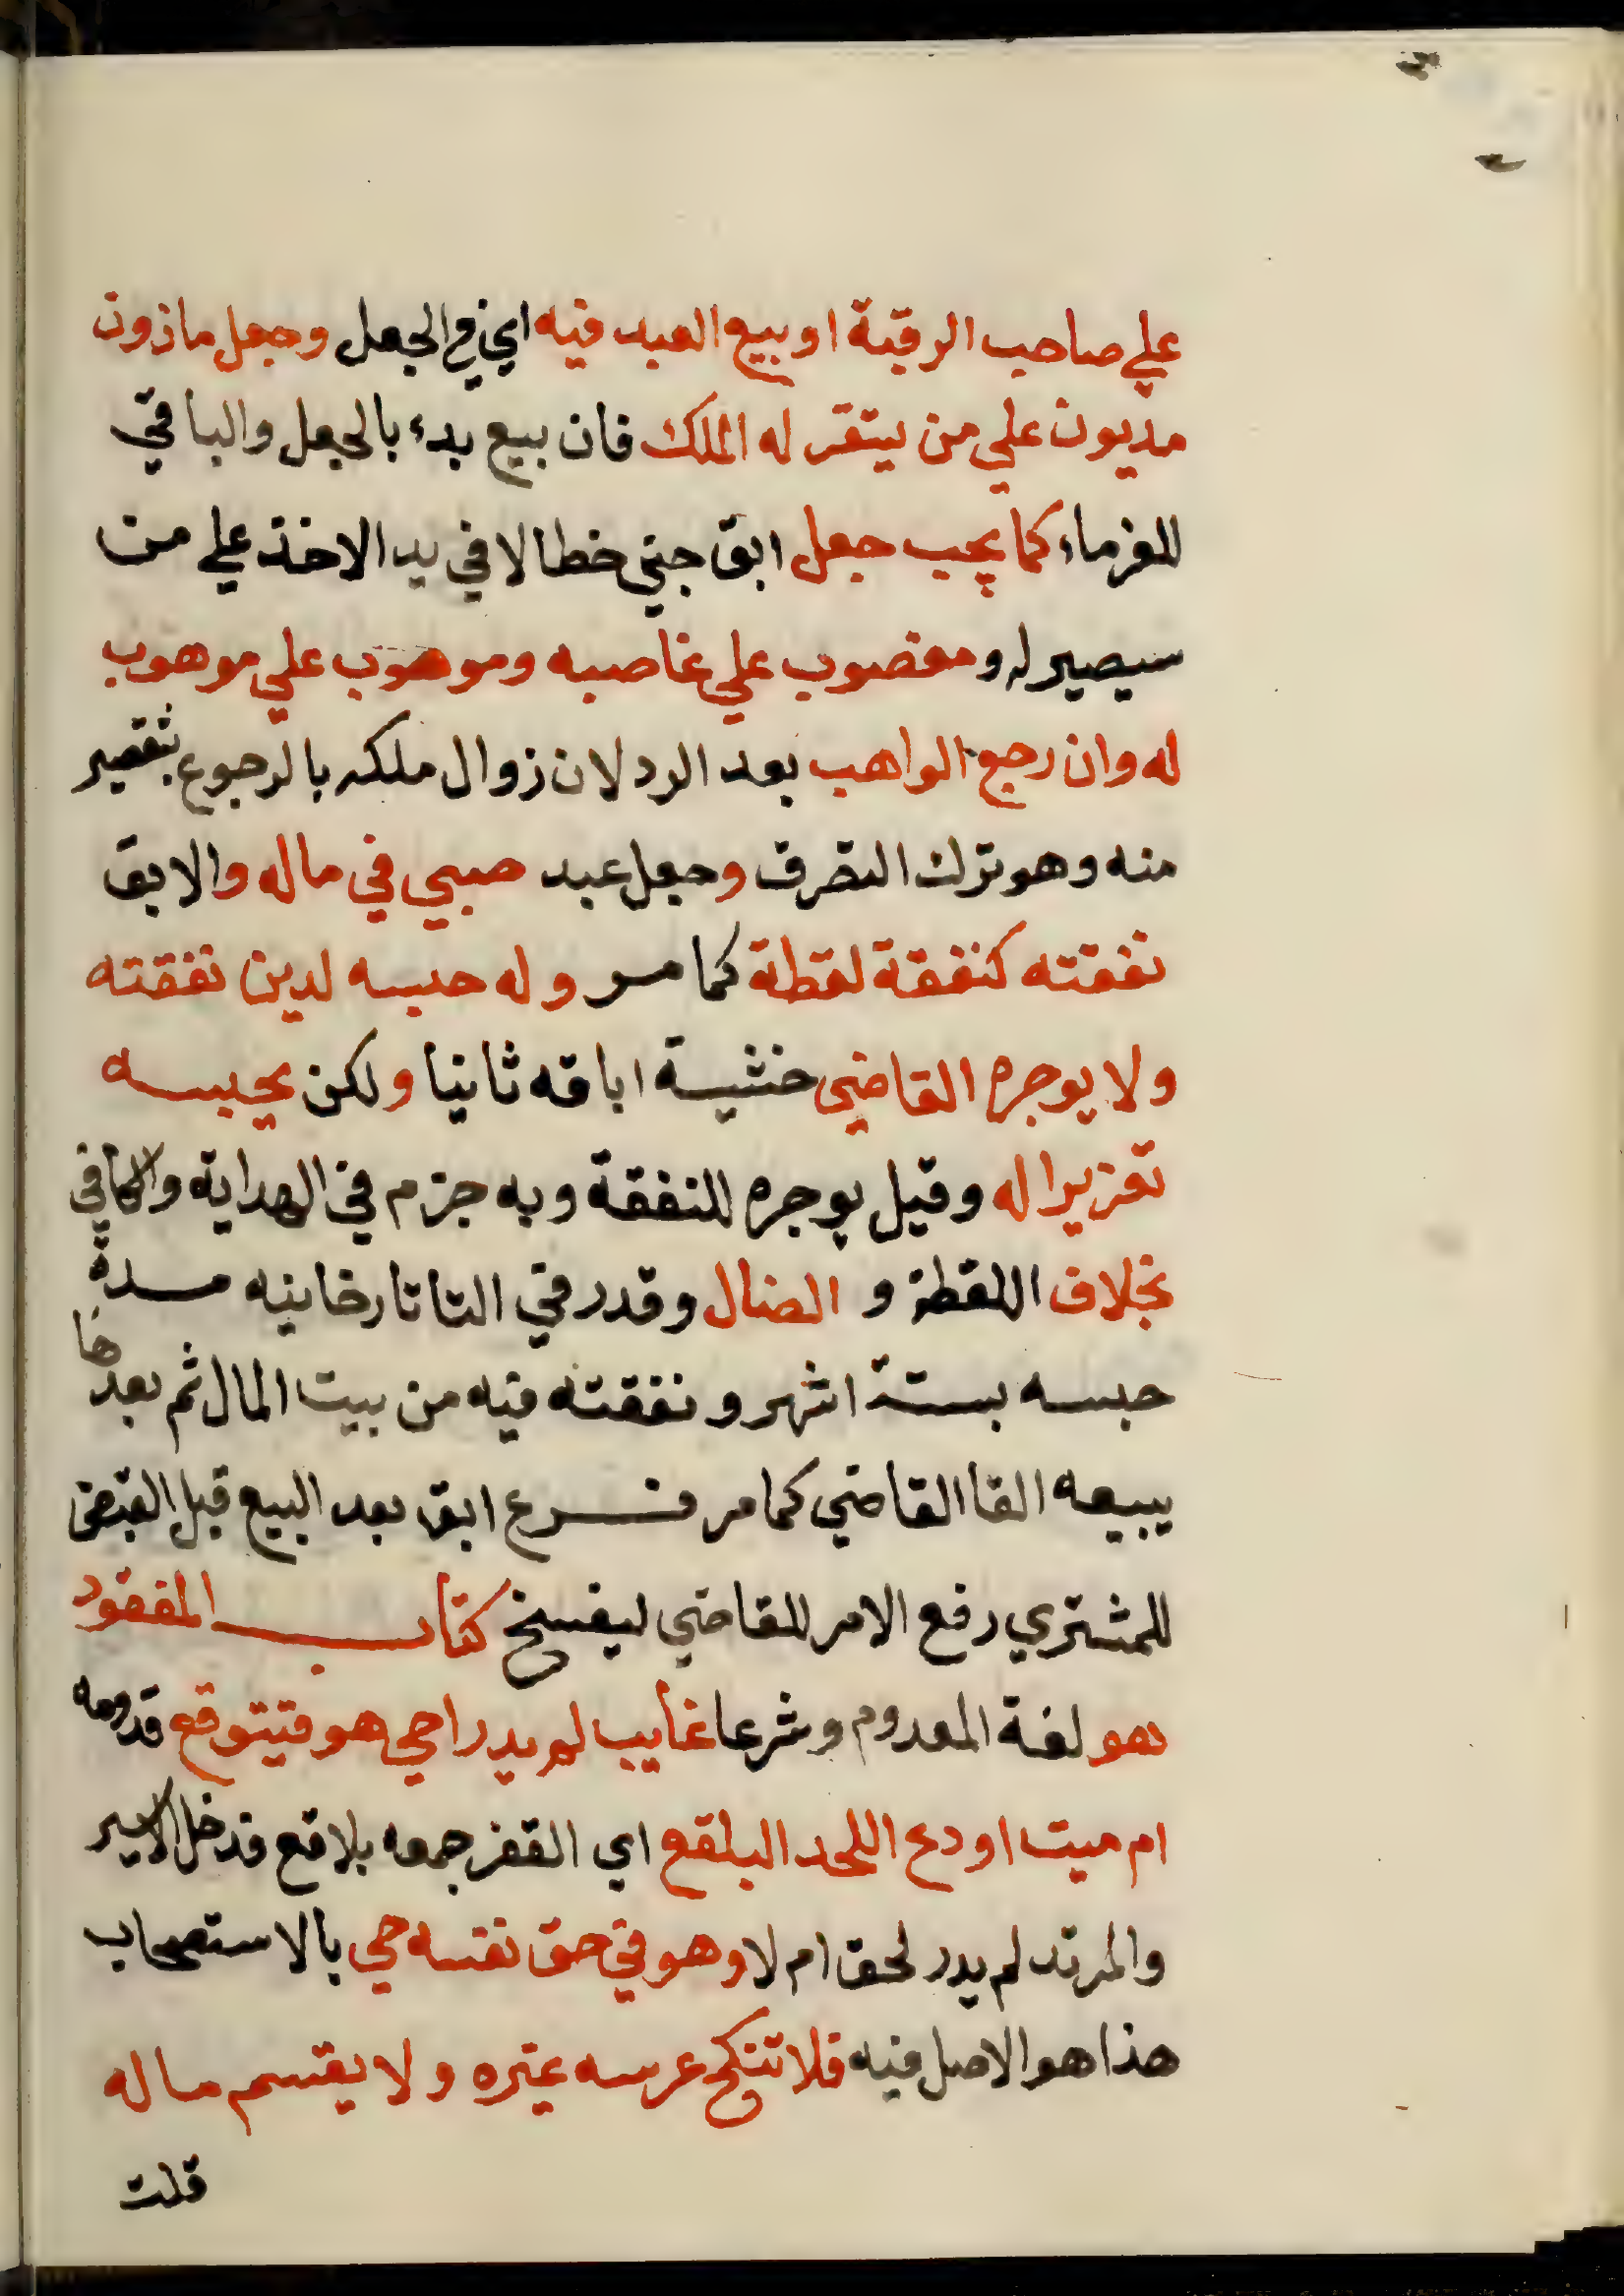 علي صاحب الرقبة او بيع العبد فيه اي في الجعل وجعل ماذون
مديون علي من يتقر له الملك فان بيع بدء بالجعل والباقي
للغرماء كما يجب جعل ابق جني خطا لا في يد الاخذ علي من
سيصير له ومغصوب علي غاصبه وموهوب علي موهوب
له وان رجع الواهب بعد الرد لان زوال ملكه بالرجوع بتقصير
منه وهو ترك التصرف وجعل عبد صبي في ماله والابق
نفقته كنفقة لقطة كما مر وله حبسه لدين نفقته
ولا يوجره القاضي خشية اباقه ثانيا ولكن يحبسه
تعزيرا له وقيل يوجره للنفقة وبه جزم في الهداية والكافي
بخلاف اللقطة و الضال وقدر في التاتارخانيه مدة
حبسه بستة اشهر و نفقته فيه من بيت المال ثم بعدها
يبيعه القا القاضي كما مر فرع ابق بعد البيع قبل القبض
للمشتري رفع الامر للقاضي ليفسخ كتاب المفقود
هو لغة المعدوم وشرعا غايب لم يدر احي هو فيتوقع قدومه
ام ميت اودع اللحد البلقع اي القفر جمعه بلاقع فدخل الاسير
والمرتد لم يدر لحق ام لا وهو في حق نفسه حي بالاستصحاب
هذا هو الاصل فيه فلا تنكح عرسه غيره ولا يقسم ماله
قلت